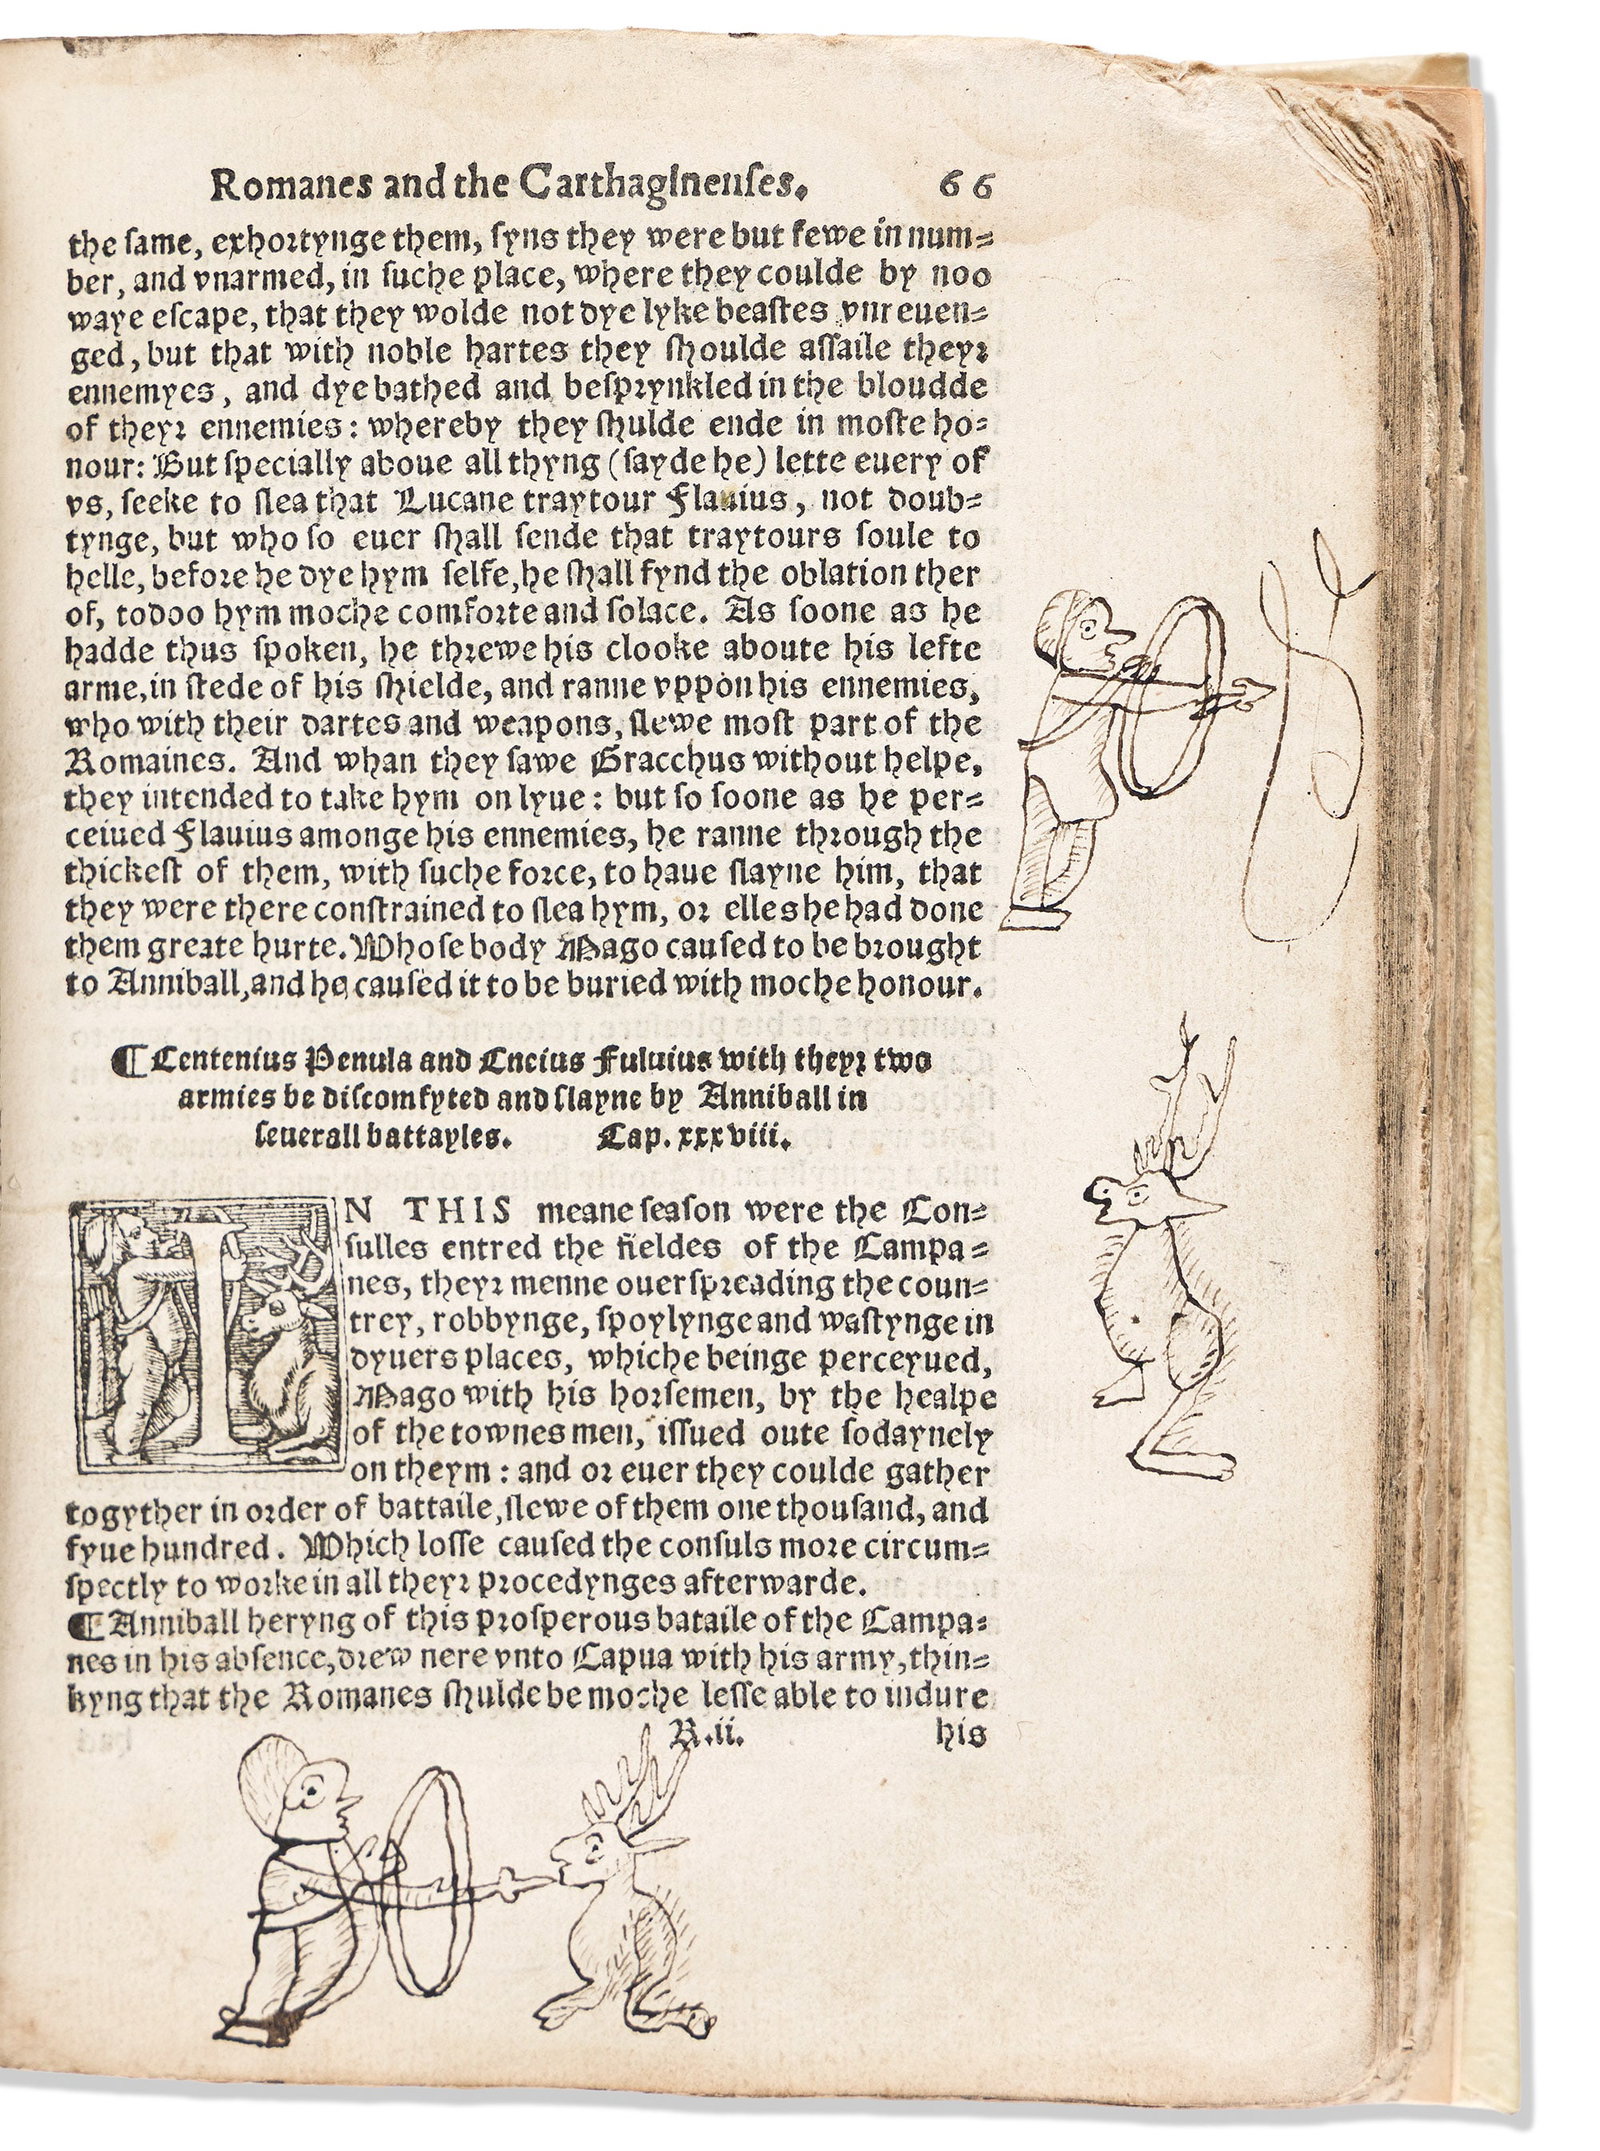 Romanes and the Carthaginenſes. 66
the ſame, exhortynge them, ſyns they were but fewe in num=
ber, and vnarmed, in ſuche place, where they coulde by noo
waye eſcape, that they wolde not dye lyke beaſtes vnreuen=
ged, but that with noble hartes they ſhoulde aſſaile theyr
ennemyes, and dye bathed and beſprynkled in the bloudde
of theyr ennemies: whereby they ſhulde ende in moſte ho=
nour: But ſpecially aboue all thyng (ſayde he) lette euery of
vs, ſeeke to ſlea that Lucane traytour Flauius, not doub=
tynge, but who ſo euer ſhall ſende that traytours ſoule to
helle, before he dye hym ſelfe, he ſhall fynd the oblation ther
of, to doo hym moche comforte and ſolace. As ſoone as he
hadde thus ſpoken, he threwe his clooke aboute his lefte
arme, in ſtede of his ſhielde, and ranne vppon his ennemies,
who with their dartes and weapons, ſlewe moſt part of the
Romaines. And whan they ſawe Gracchus without helpe,
they intended to take hym on lyue: but ſo ſoone as he per=
ceiued Flauius amonge his ennemies, he ranne through the
thickeſt of them, with ſuche force, to haue ſlayne him, that
they were there conſtrained to ſlea hym, or elles he had done
them greate hurte. Whoſe body Mago cauſed to be brought
to Anniball, and he cauſed it to be buried with moche honour.
¶ Centenius Penula and Cneius Fuluius with theyr two
armies be diſcomfyted and ſlayne by Anniball in
ſeuerall battayles. Cap. xxxviii.
IN THIS meane ſeaſon were the Con=
ſulles entred the fieldes of the Campa=
nes, theyr menne ouerſpreading the coun=
trey, robbynge, ſpoylynge and waſtynge in
dyuers places, whiche beinge perceyued,
Mago with his horſemen, by the healpe
of the townes men, iſſued oute ſodaynely
on theym: and or euer they coulde gather
togyther in order of battaile, ſlewe of them one thouſand, and
fyue hundred. Which loſſe cauſed the conſuls more circum=
ſpectly to worke in all theyr procedynges afterwarde.
¶ Anniball heryng of this proſperous bataile of the Campa=
nes in his abſence, drew nere vnto Capua with his army, thin=
kyng that the Romanes ſhulde be moche leſſe able to indure
R.ii. his